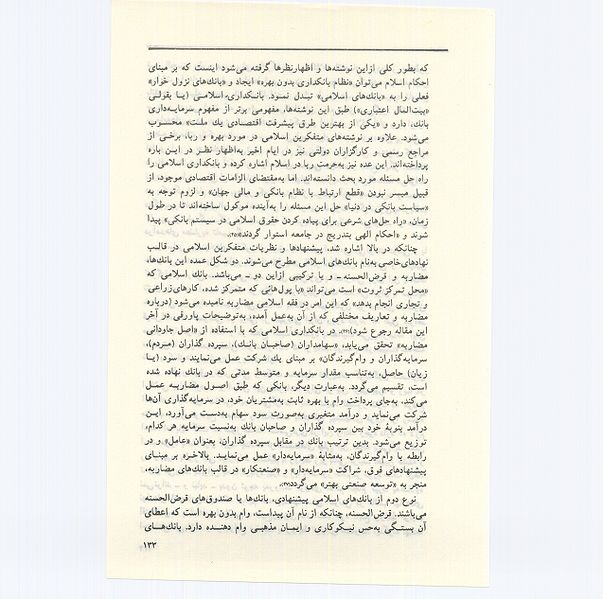 که بطور کلی ازاین نوشته‌ها و اظهارنظرها گرفته می‌شود اینست که بر مبنای
احکام اسلام می‌توان «نظام بانکداری بدون بهره» ایجاد و «بانک‌های نزول خوار»
فعلی را به «بانک‌های اسلامی» تبدیل نمود. بانکداری اسلامی (یا بقولی
«بیت‌المال اعتباری») طبق این نوشته‌ها، مفهومی برتر از مفهوم سرمایه‌داری
بانک، دارد و «یکی از بهترین طرق پیشرفت اقتصادی یك ملت» محسوب
می‌شود. علاوه بر نوشته‌های متفکرین اسلامی در مورد بهره و ربا، برخی از
مراجع رسمی و کارگزاران دولتی نیز در ایام اخیر به‌اظهار نظر در این باره
پرداخته‌اند. این عده نیز به‌حرمت ربا در اسلام اشاره کرده و بانکداری اسلامی را
راه حل مسئله مورد بحث دانسته‌اند. اما به‌مقتضای الزامات اقتصادی موجود، از
قبیل میسر نبودن «قطع ارتباط با نظام بانکی و مالی جهان» و لزوم توجه به
«سیاست بانکی در دنیا» حل این مسئله را به‌آینده موکول ساخته‌اند تا در طول
زمان، «راه حل‌های شرعی برای پیاده کردن حقوق اسلامی در سیستم بانکی» پیدا
شوند و «احکام الهی بتدریج در جامعه استوار گردند»
چنانکه در بالا اشاره شد، پیشنهادها و نظریات متفکرین اسلامی در قالب
نهادهای‌خاصی به‌نام بانک‌های اسلامی مطرح می‌شوند. دو شکل عمده این بانک‌ها،
مضاربه و قرض‌الحسنه ــ و یا ترکیبی ازاین دو ــ می‌باشد. بانك اسلامی که
«محل تمرکز ثروت» است می‌تواند «با پول‌هائی که متمرکز شده، کارهای‌زراعی
و تجاری انجام بدهد» که این امر در فقه اسلامی مضاربه نامیده می‌شود (درباره
مضاربه و تعاریف مختلفی که از آن به‌عمل آمده، به‌توضیحات پاورقی در آخر
این مقاله رجوع شود). در بانکداری اسلامی که با استفاده از «اصل جاودانی
مضاربه» تحقق می‌یابد، «سهامداران (صاحبان بانك)، سپرده گذاران (مردم)،
سرمایه‌گذاران و وام‌گیرندگان» بر مبنای یك شرکت عمل می‌نمایند و سود (یا
زیان) حاصل، به‌تناسب مقدار سرمایه و متوسط مدتی که در بانك نهاده شده
است، تقسیم می‌گردد. به‌عبارت دیگر، بانکی که طبق اصول مضاربه عمل
می‌کند، به‌جای پرداخت وام با بهره ثابت به‌مشتریان خود، در سرمایه‌گذاری آن‌ها
شرکت می‌نماید و درآمد متغیری به‌صورت سود سهام به‌دست می‌آورد، این
درآمد بنوبهٔ خود بین سپرده گذاران و صاحبان بانك به‌نسبت سرمایه هر کدام،
توزیع می‌شود. بدین ترتیب بانك در مقابل سپرده گذاران، بعنوان «عامل» و در
رابطه با وام‌گیرندگان، به‌مثابهٔ «سرمایه‌دار» عمل می‌نماید. بالاخره بر مبنای
پیشنهادهای فوق، شراکت «سرمایه‌دار» و «صنعتکار» در قالب بانك‌های مضاربه،
منجر به «توسعه صنعتی بهتر» می‌گردد
نوع دوم از بانك‌های اسلامی پیشنهادی، بانك‌ها یا صندوق‌های قرض‌الحسنه
می‌باشند. قرض‌الحسنه، چنانکه از نام آن پیداست، وام بدون بهره است که اعطای
آن بستگی به‌حس نیکوکاری و ایمان مذهبی وام دهنده دارد. بانك‌های
۱۳۳